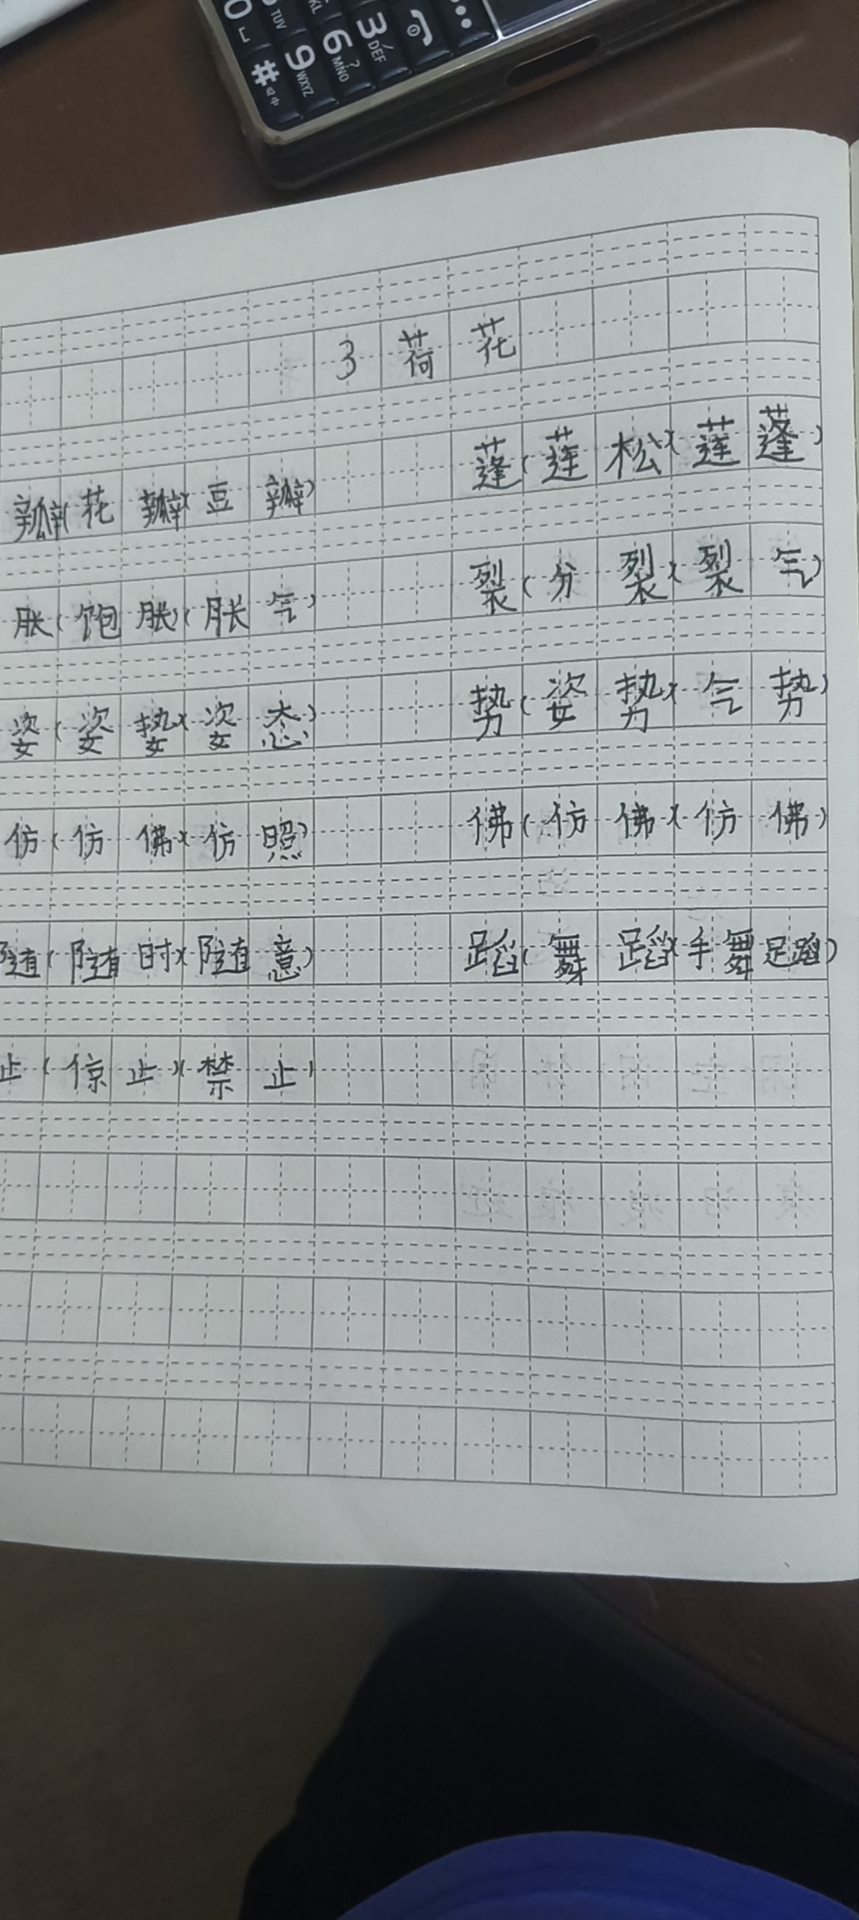 0 TUV
# 9 WXYZ
6 MNO ?
3 DEF /
3 荷 花
瓣(花 瓣)(豆 瓣) 蓬(莲 松)(莲 蓬)
胀(饱 胀)(胀 气) 裂(分 裂)(裂 气)
姿(姿 势)(姿 态) 势(姿 势)(气 势)
仿(仿 佛)(仿 照) 佛(仿 佛)(仿 佛)
随(随 时)(随 意) 蹈(舞 蹈)(手 舞 足 蹈)
止(停 止)(禁 止)